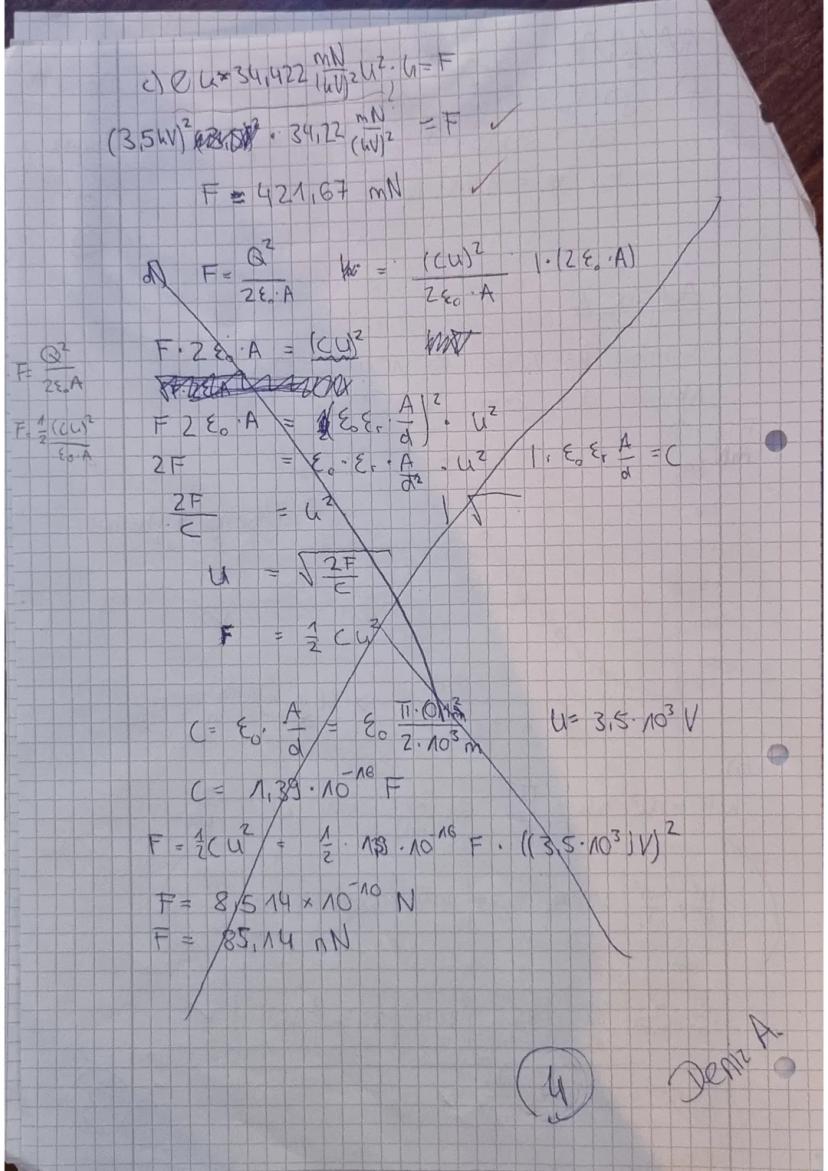 c) 34,422 mN/(kV)² U² = F
(3,5kV)² · 34,22 mN/(kV)² = F ✓
F = 421,67 mN ✓
d) F = Q²/(2ε₀·A) = (CU)²/(2ε₀·A) |·(2ε₀·A)
F·2ε₀·A = (CU)²
F = Q²/(2ε₀A)
F 2ε₀·A = (ε₀εᵣ·A/d)² · U²
F = ½ (CU)²/(ε₀·A)
2F = ε₀·εᵣ·A/d² · U² |· ε₀εᵣ A/d = C
2F/C = U² |√
U = √(2F/C)
F = ½ CU²
C = ε₀· A/d = ε₀ π·0,1²/(2·10³ m) U = 3,5·10³ V
C = 1,39·10⁻¹⁶ F
F = ½CU² = ½ · 1,39·10⁻¹⁶ F · ((3,5·10³)V)²
F = 8,514 × 10⁻¹⁰ N
F = 85,14 nN
4
Deniz A.